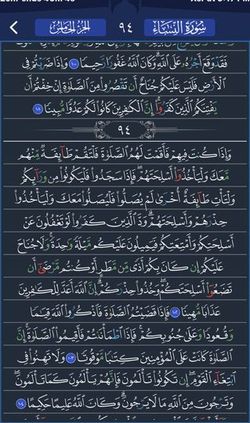 سُورَةُ النِّسَاءِ ٩٤ الجزء الخامس
فَقَدْ وَقَعَ أَجْرُهُۥ عَلَى ٱللَّهِ وَكَانَ ٱللَّهُ غَفُورًا رَّحِيمًا وَإِذَا ضَرَبْتُمْ فِى
ٱلْأَرْضِ فَلَيْسَ عَلَيْكُمْ جُنَاحٌ أَن تَقْصُرُوا۟ مِنَ ٱلصَّلَوٰةِ إِنْ خِفْتُمْ أَن
يَفْتِنَكُمُ ٱلَّذِينَ كَفَرُوٓا۟ إِنَّ ٱلْكَٰفِرِينَ كَانُوا۟ لَكُمْ عَدُوًّا مُّبِينًا
٩٤
وَإِذَا كُنتَ فِيهِمْ فَأَقَمْتَ لَهُمُ ٱلصَّلَوٰةَ فَلْتَقُمْ طَآئِفَةٌ مِّنْهُم
مَّعَكَ وَلْيَأْخُذُوٓا۟ أَسْلِحَتَهُمْ فَإِذَا سَجَدُوا۟ فَلْيَكُونُوا۟ مِن وَرَآئِكُمْ
وَلْتَأْتِ طَآئِفَةٌ أُخْرَىٰ لَمْ يُصَلُّوا۟ فَلْيُصَلُّوا۟ مَعَكَ وَلْيَأْخُذُوا۟
حِذْرَهُمْ وَأَسْلِحَتَهُمْ وَدَّ ٱلَّذِينَ كَفَرُوا۟ لَوْ تَغْفُلُونَ عَنْ
أَسْلِحَتِكُمْ وَأَمْتِعَتِكُمْ فَيَمِيلُونَ عَلَيْكُم مَّيْلَةً وَٰحِدَةً وَلَا جُنَاحَ
عَلَيْكُمْ إِن كَانَ بِكُمْ أَذًى مِّن مَّطَرٍ أَوْ كُنتُم مَّرْضَىٰٓ أَن
تَضَعُوٓا۟ أَسْلِحَتَكُمْ وَخُذُوا۟ حِذْرَكُمْ إِنَّ ٱللَّهَ أَعَدَّ لِلْكَٰفِرِينَ
عَذَابًا مُّهِينًا فَإِذَا قَضَيْتُمُ ٱلصَّلَوٰةَ فَٱذْكُرُوا۟ ٱللَّهَ قِيَٰمًا
وَقُعُودًا وَعَلَىٰ جُنُوبِكُمْ فَإِذَا ٱطْمَأْنَنتُمْ فَأَقِيمُوا۟ ٱلصَّلَوٰةَ إِنَّ
ٱلصَّلَوٰةَ كَانَتْ عَلَى ٱلْمُؤْمِنِينَ كِتَٰبًا مَّوْقُوتًا وَلَا تَهِنُوا۟ فِى
ٱبْتِغَآءِ ٱلْقَوْمِ إِن تَكُونُوا۟ تَأْلَمُونَ فَإِنَّهُمْ يَأْلَمُونَ كَمَا تَأْلَمُونَ
وَتَرْجُونَ مِنَ ٱللَّهِ مَا لَا يَرْجُونَ وَكَانَ ٱللَّهُ عَلِيمًا حَكِيمًا